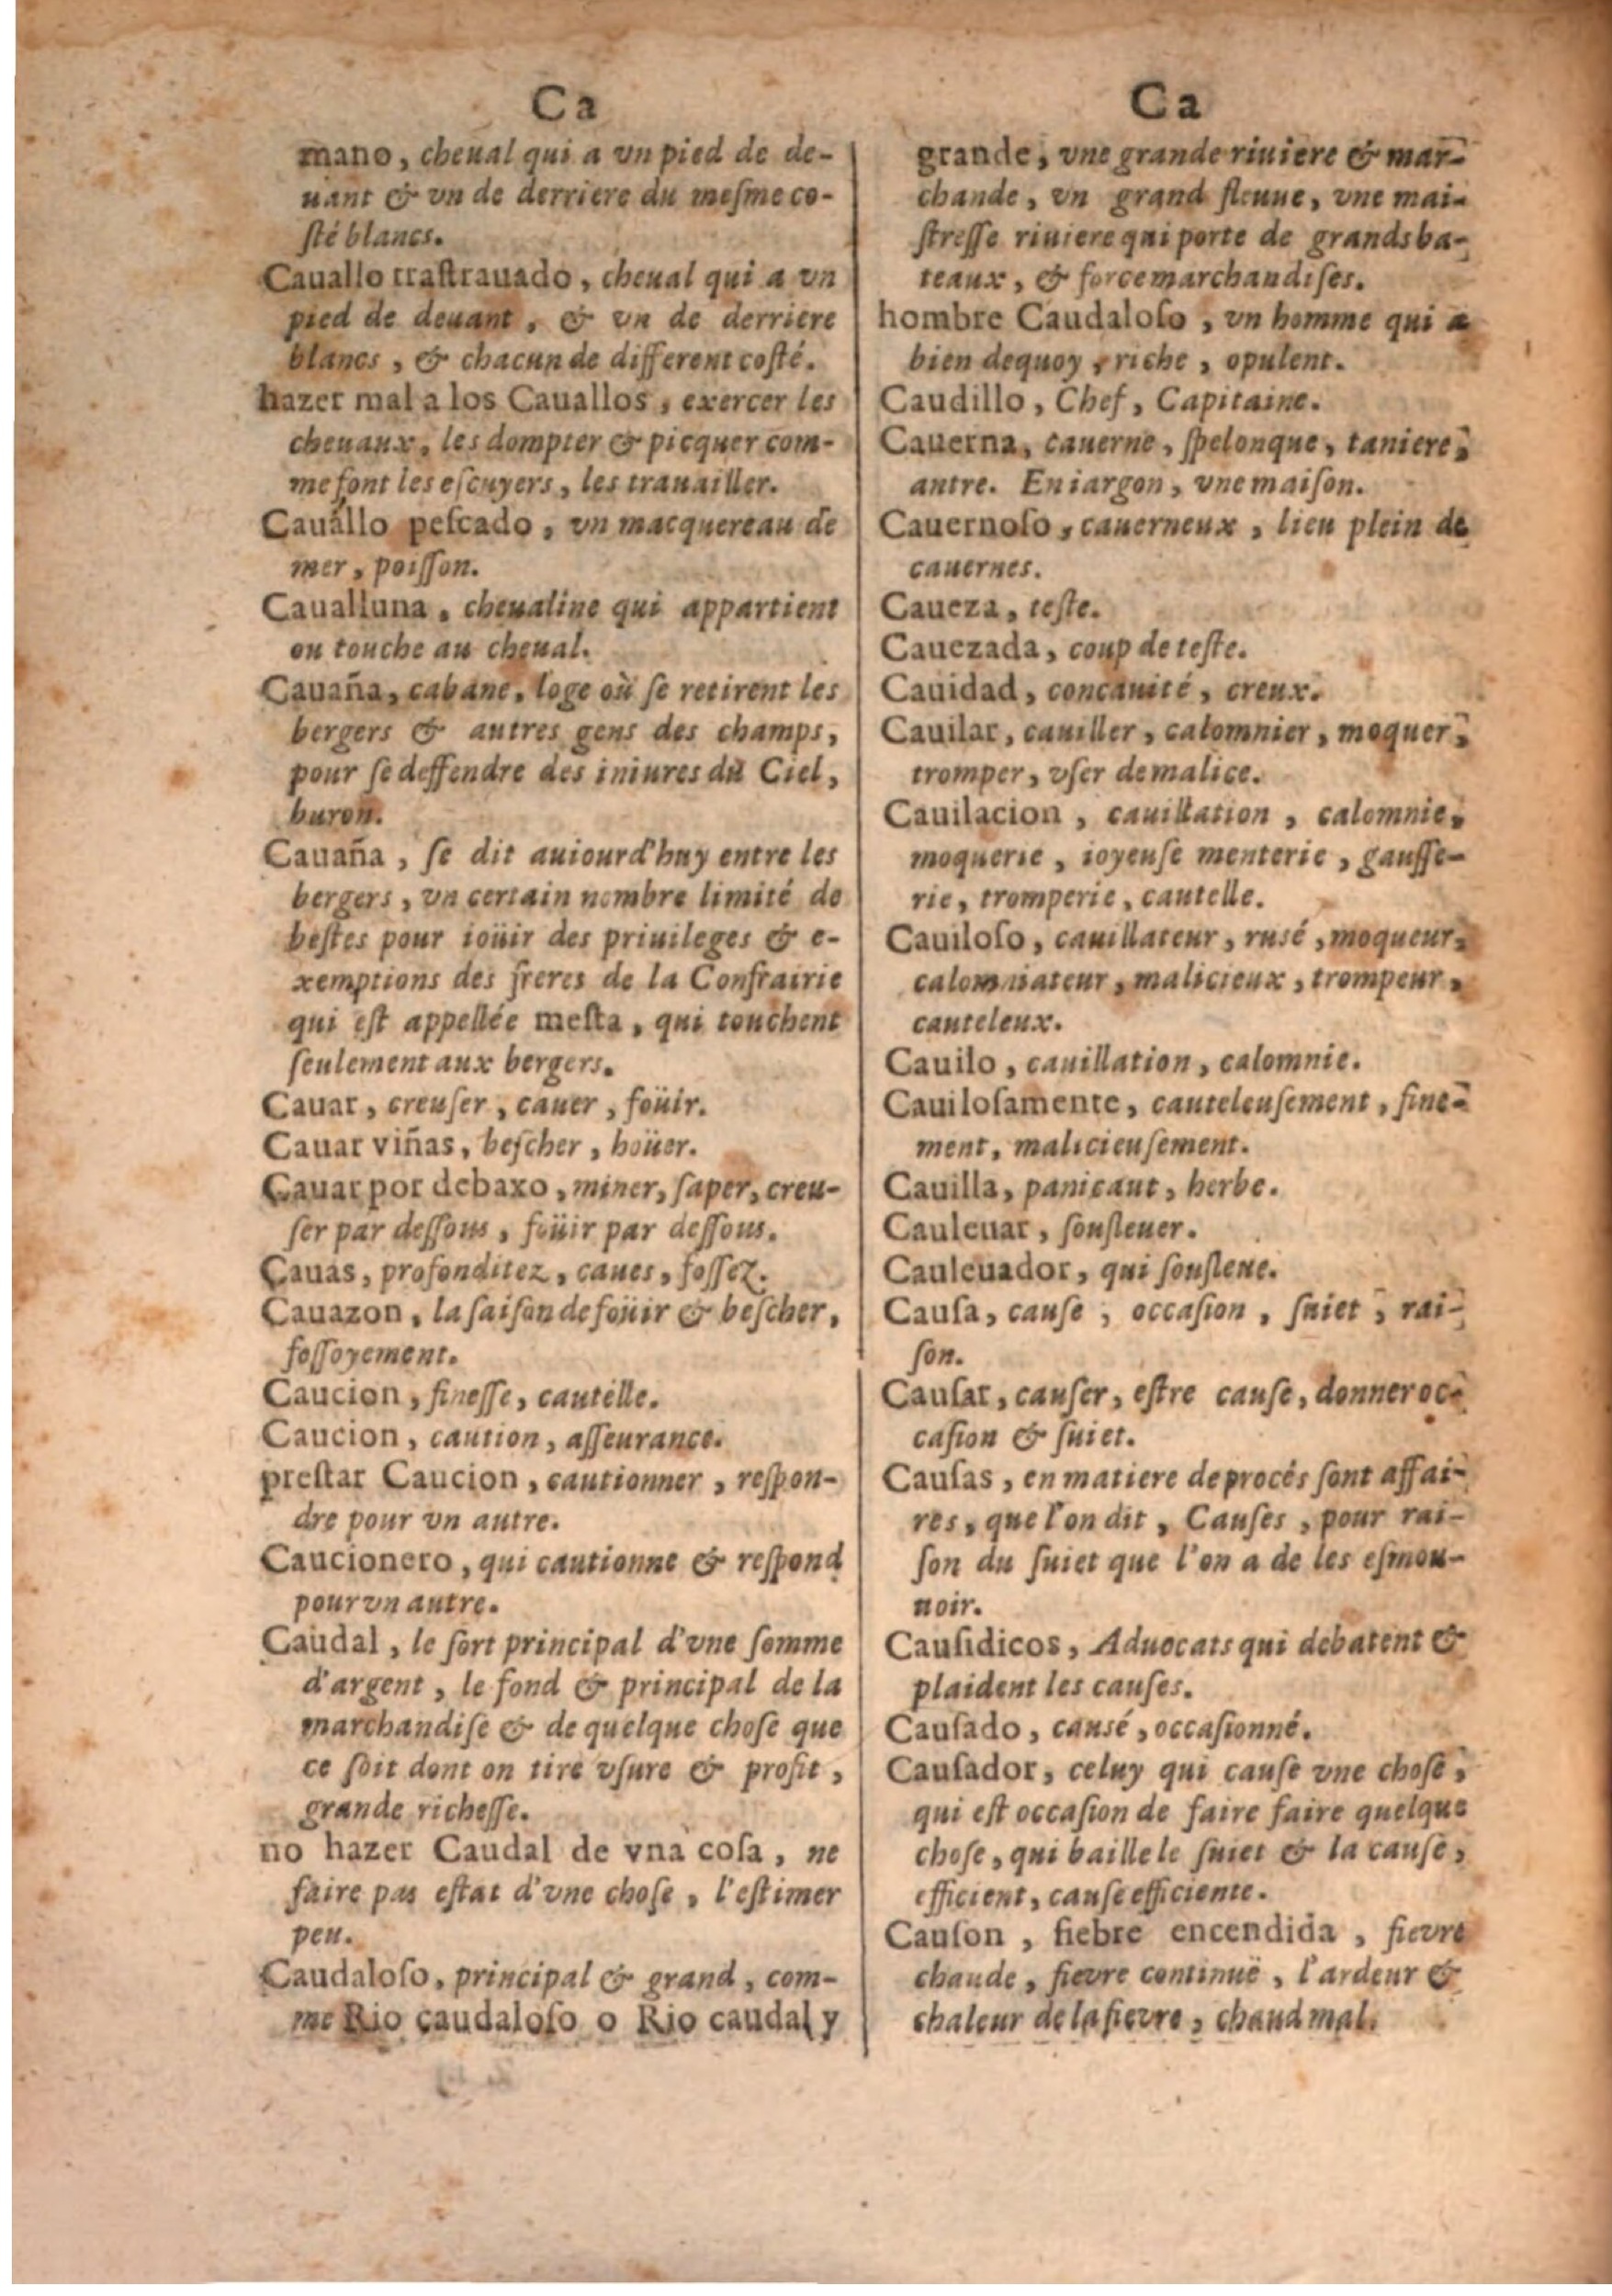 Ca
mano, cheual qui a vn pied de de-
uant & vn de derriere du meſme co-
ſté blancs.
Cauallo traſtrauado, cheual qui a vn
pied de deuant, & vn de derriere
blancs, & chacun de different coſté.
hazer mal a los Cauallos, exercer les
cheuaux, les dompter & picquer com-
me font les eſcuyers, les trauailler.
Cauallo peſcado, vn macquereau de
mer, poiſſon.
Caualluna, cheualine qui appartient
ou touche au cheual.
Cauaña, cabane, loge où ſe retirent les
bergers & autres gens des champs,
pour ſe deffendre des iniures du Ciel,
buron.
Cauaña, ſe dit auiourd'huy entre les
bergers, vn certain nombre limité de
beſtes pour ioüir des priuileges & e-
xemptions des freres de la Confrairie
qui eſt appellée meſta, qui touchent
ſeulement aux bergers.
Cauar, creuſer, cauer, foüir.
Cauar viñas, beſcher, hoüer.
Cauar por debaxo, miner, ſaper, creu-
ſer par deſſous, foüir par deſſous.
Cauas, profonditez, caues, foſſez.
Cauazon, la ſaiſon de foüir & beſcher,
foſſoyement.
Caucion, fineſſe, cautelle.
Caucion, caution, aſſeurance.
preſtar Caucion, cautionner, reſpon-
dre pour vn autre.
Caucionero, qui cautionne & reſpond
pour vn autre.
Caudal, le ſort principal d'vne ſomme
d'argent, le fond & principal de la
marchandiſe & de quelque choſe que
ce ſoit dont on tire vſure & profit,
grande richeſſe.
no hazer Caudal de vna coſa, ne
faire pas eſtat d'vne choſe, l'eſtimer
peu.
Caudaloſo, principal & grand, com-
me Rio caudaloſo o Rio caudal y
Ca
grande, vne grande riuiere & mar-
chande, vn grand fleuue, vne mai-
ſtreſſe riuiere qui porte de grands ba-
teaux, & force marchandiſes.
hombre Caudaloſo, vn homme qui a
bien dequoy, riche, opulent.
Caudillo, Chef, Capitaine.
Cauerna, cauerne, ſpelonque, taniere,
antre. En iargon, vne maiſon.
Cauernoſo, cauerneux, lieu plein de
cauernes.
Caueza, teſte.
Cauezada, coup de teſte.
Cauidad, concauité, creux.
Cauilar, cauiller, calomnier, moquer,
tromper, vſer de malice.
Cauilacion, cauillation, calomnie,
moquerie, ioyeuſe menterie, gauſſe-
rie, tromperie, cautelle.
Cauiloſo, cauillateur, rusé, moqueur,
calomniateur, malicieux, trompeur,
cauteleux.
Cauilo, cauillation, calomnie.
Cauiloſamente, cauteleuſement, fine-
ment, malicieuſement.
Cauilla, panicaut, herbe.
Cauleuar, ſouſleuer.
Cauleuador, qui ſouſleue.
Cauſa, cauſe, occaſion, ſuiet, rai-
ſon.
Cauſar, cauſer, eſtre cauſe, donner oc-
caſion & ſuiet.
Cauſas, en matiere de procés ſont affai-
res, que l'on dit, Cauſes, pour rai-
ſon du ſuiet que l'on a de les eſmou-
uoir.
Cauſidicos, Aduocats qui debatent &
plaident les cauſes.
Cauſado, causé, occaſionné.
Cauſador, celuy qui cauſe vne choſe,
qui eſt occaſion de faire faire quelque
choſe, qui baille le ſuiet & la cauſe,
efficient, cauſe efficiente.
Cauſon, fiebre encendida, fievre
chaude, fievre continuë, l'ardeur &
chaleur de la fievre, chaud mal.